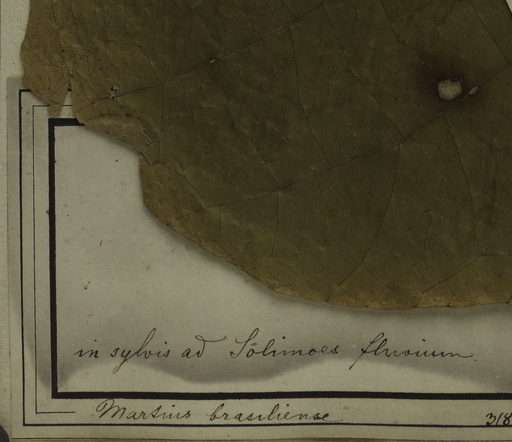 in sylvis ad Sólimoes fluvium.
Martius brasiliense 318